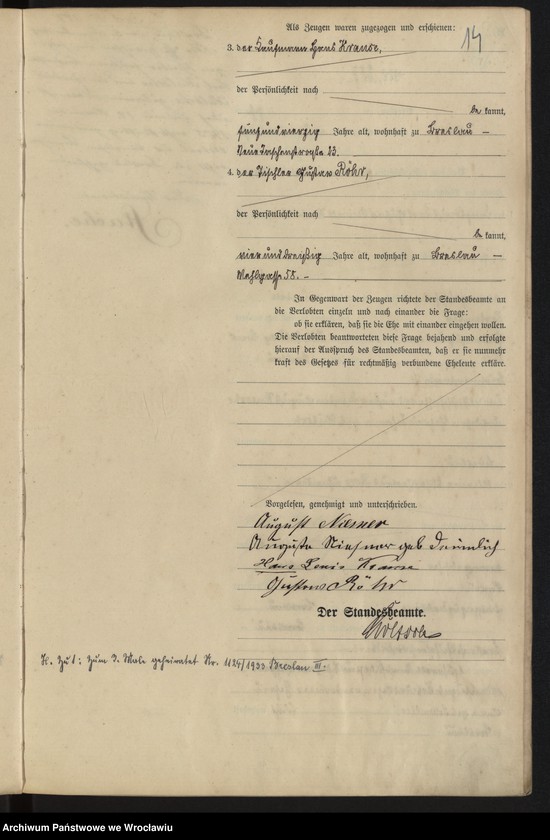 14
Als Zeugen waren zugezogen und erschienen:
3. der Kaufmann Hans Krause,
der Persönlichkeit nach
be kannt,
fünfundvierzig Jahre alt, wohnhaft zu Breslau –
Neue Taschenstraße 23.
4. der Tischler Gustav Röhr,
der Persönlichkeit nach
be kannt,
vierunddreißig Jahre alt, wohnhaft zu Breslau –
Mehlgasse 58. –
In Gegenwart der Zeugen richtete der Standesbeamte an
die Verlobten einzeln und nach einander die Frage:
ob sie erklären, daß sie die Ehe mit einander eingehen wollen.
Die Verlobten beantworteten diese Frage bejahend und erfolgte
hierauf der Ausspruch des Standesbeamten, daß er sie nunmehr
kraft des Gesetzes für rechtmäßig verbundene Eheleute erkläre.
Vorgelesen, genehmigt und unterschrieben.
August
Auguste geb
Hans Krause
Gustav Röhr
Der Standesbeamte.
zum 3. Male geheiratet Nr. 1124/1933 Breslau III.
Archiwum Państwowe we Wrocławiu